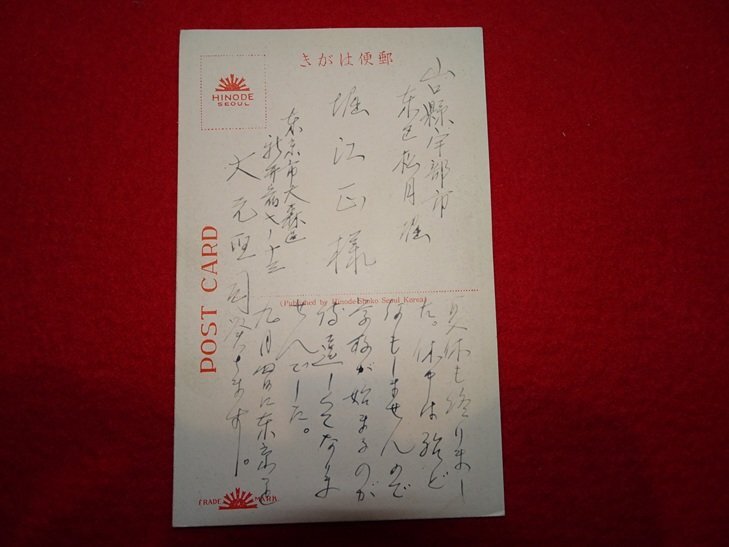 郵便はがき
HINODE
SEOUL
山口縣宇部市
東区松月堀
堀江正様
東京市大森區
新井宿七ノ十三
大元
POST CARD
(Published by Hinode-Shoko Seoul Korea)
夏休も終りまし
た。休中は殆ど
何もしませんので
学校が始まるのが
待遠しくてなりま
せんでした。
九月四日に東京を
ます。
TRADE MARK